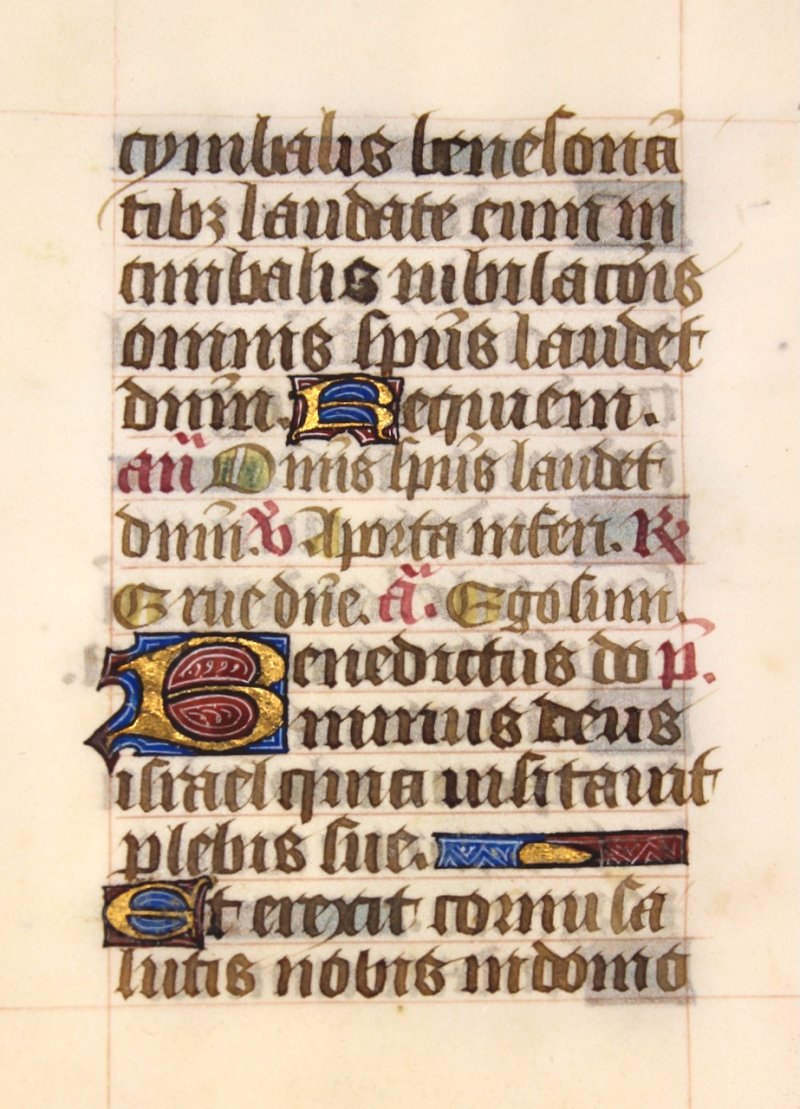 cymbalis benesonā
tibꝫ laudate eum in
cimbalis iubilacōis
omnis spūs laudet
dnm̄. Requiem.
an̄ Omīs spūs laudet
dnm̄. ℣ A porta inferi. ℟
Erue dn̄e. ā. Ego sum.
Benedictus do p̄.
minus deus
israel quia uisitauit
plebis sue.
Et erexit cornu sa
lutis nobis in domo